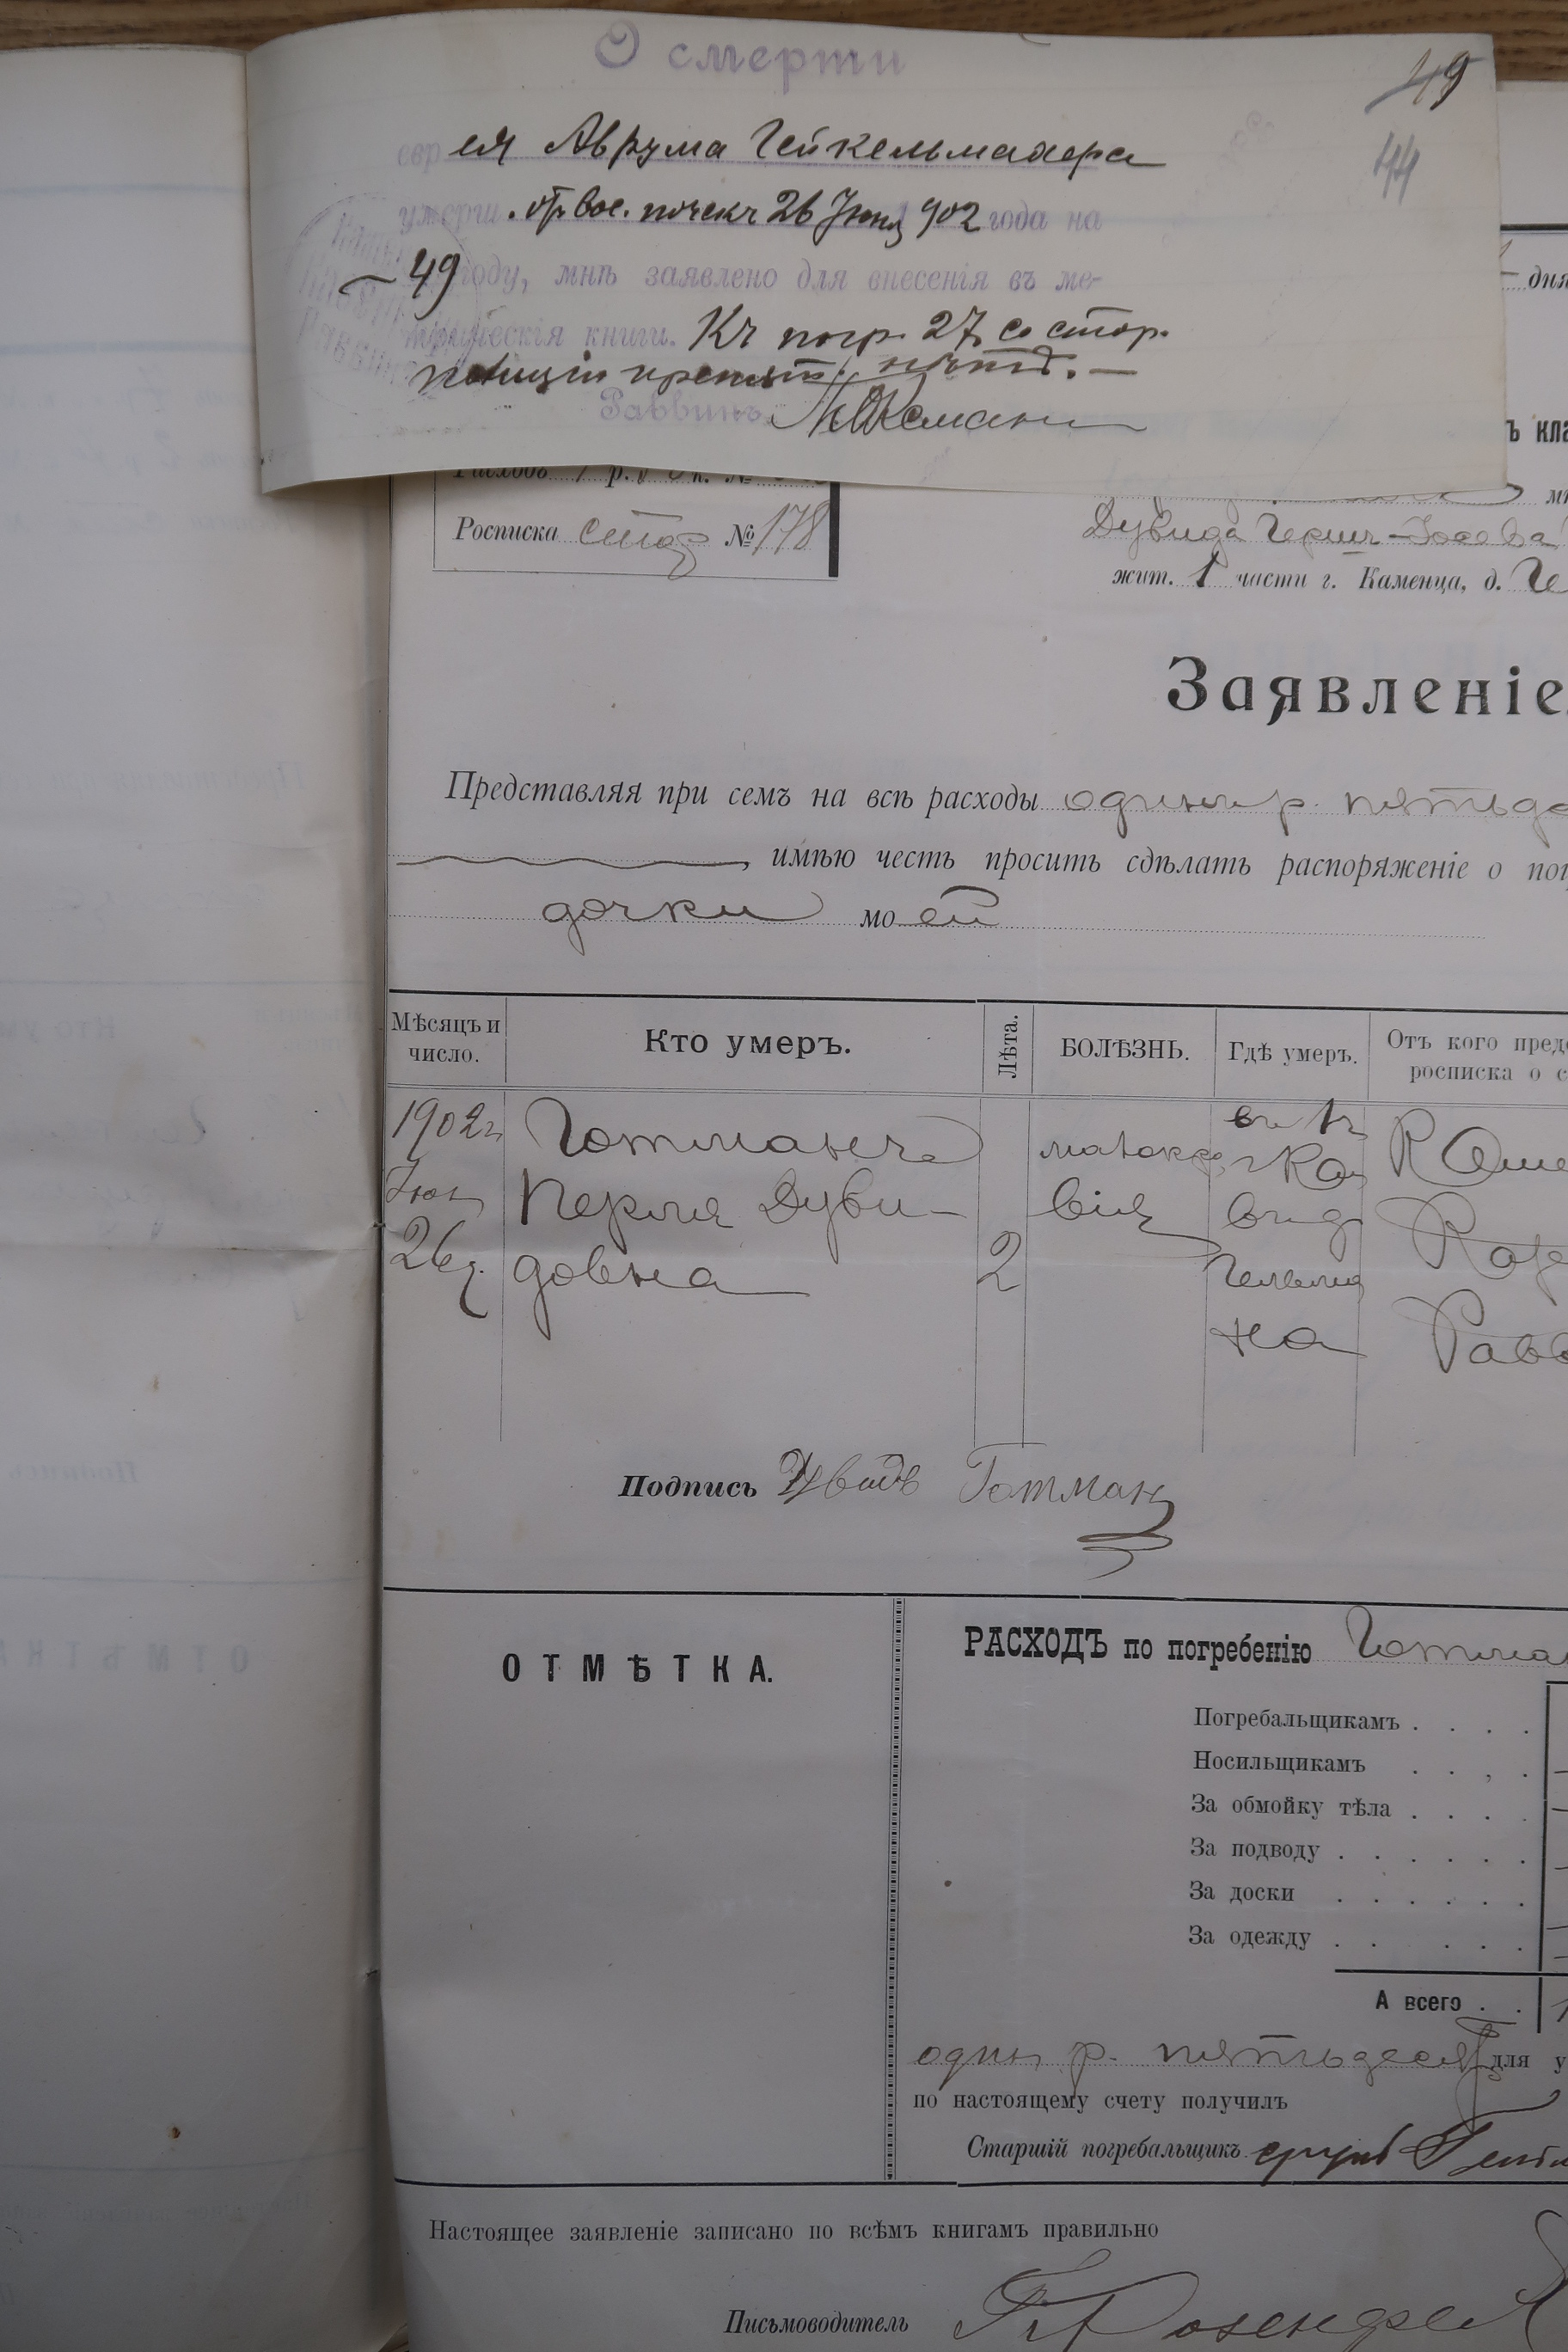 О смерти
49
44
евр ея Аврума Гейкельмахера
умерш. от вос. почекъ 26 Іюня 902 года на
49 году, мнѣ заявлено для внесенія въ ме-
трическія книги. Къ погр. 27 со стор.
полиціи препят. нѣтъ. —
Раввинъ
дня
Расходъ 1 р. к. №
Росписка стор №178
Дувида Герш-Іосева
жит. 1 части г. Каменца, д. Ге
Заявленіе
Представляя при семъ на всѣ расходы одинъ р. пятьде
имѣю честь просить сдѣлать распоряженіе о пог
дочки моей
Мѣсяцъ и число.
Кто умеръ.
Лѣта.
БОЛѢЗНЬ.
Гдѣ умеръ.
Отъ кого предс
росписка о с
1902г
Іюн
26д.
Готманъ
Перля Дуви-
довна
2
малокро
вія
на
Равв
Подпись Дувидъ Готман
ОТМѢТКА.
РАСХОДЪ по погребенію Готман
Погребальщикамъ . . . .
Носильщикамъ . . , .
За обмойку тѣла . . . .
За подводу . . . . . .
За доски . . . . . .
За одежду . . . . . .
А всего . .
одинъ р. пятьдесят для у
по настоящему счету получилъ
Старшій погребальщикъ
Настоящее заявленіе записано по всѣмъ книгамъ правильно
Письмоводитель Розенфел